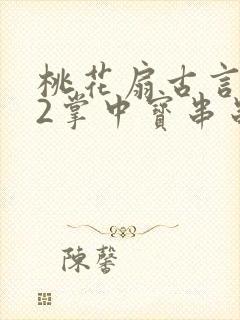 桃花扇古言
2掌中寶串
陳馨